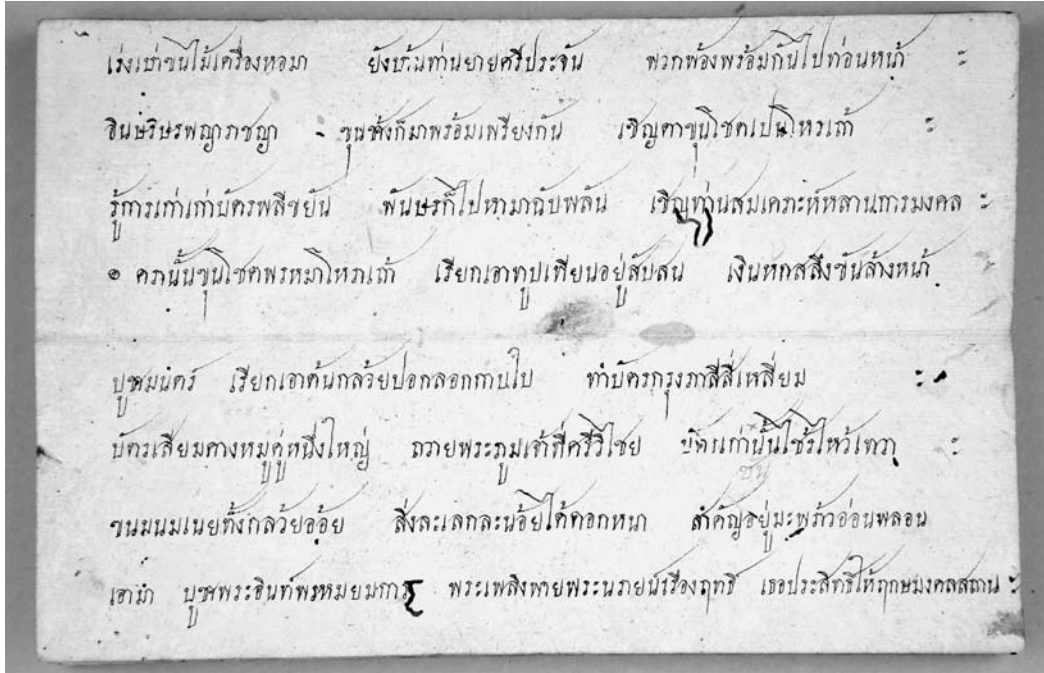 เร่งเข่าขนไม้เครื่องหอมา ยังบ้านท่านยายศรีประจัน พวกพ้องพร้อมกันไปท่อนหน้า ฯ
อินษรนพญาราชญา ขุนชังก็มาพร้อมเพรียงกัน เชิญตาขุนโชดเปนโหรเถ้า ฯ
รู้การเก่าเก่าบัตรพลีขยัน พันษรก็ไปหามาฉับพลัน เชิญท่านสมเคราะห์หลานการมงคล ฯ
๏ ครานั้นขุนโชดพรหมาโหราเถ้า เรียกเอาทูปเทียนอยู่สับสน เงินหกสลึงขันล้างหน้า
บูชามนตร์ เรียกเอาต้นกล้วยปอกลอกกานใบ ทำบัตรกรุงภาลีสี่เหลี่ยม ฯ
บัตรเสียมคางหมูคู่หนึ่งใหญ่ ถวายพระภูมเจ้าที่ศรีวิไชย บัตรเก่านั้นไช้ไหว้เทวา ฯ
ขนมนมเนยทั้งกล้วยอ้อย สิ่งละเลกละน้อยได้ดอกหนา สำคัญอยู่มะพร้าวอ่อนพลอน
เอามา บูชาพระอินท์พรหมยมการ พระเพลิงพายพระนรายน์เรืองฤทธิ เธอประสิทธิให้ฤกษมงคลสถาน ฯ